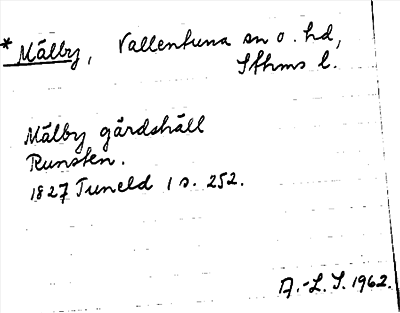 * Mälby, Vallentuna sn o. hd,
Sthms l.
Mälby gårdshäll
Runsten.
1827 Tuneld 1 s. 252.
A.-L. S. 1962.